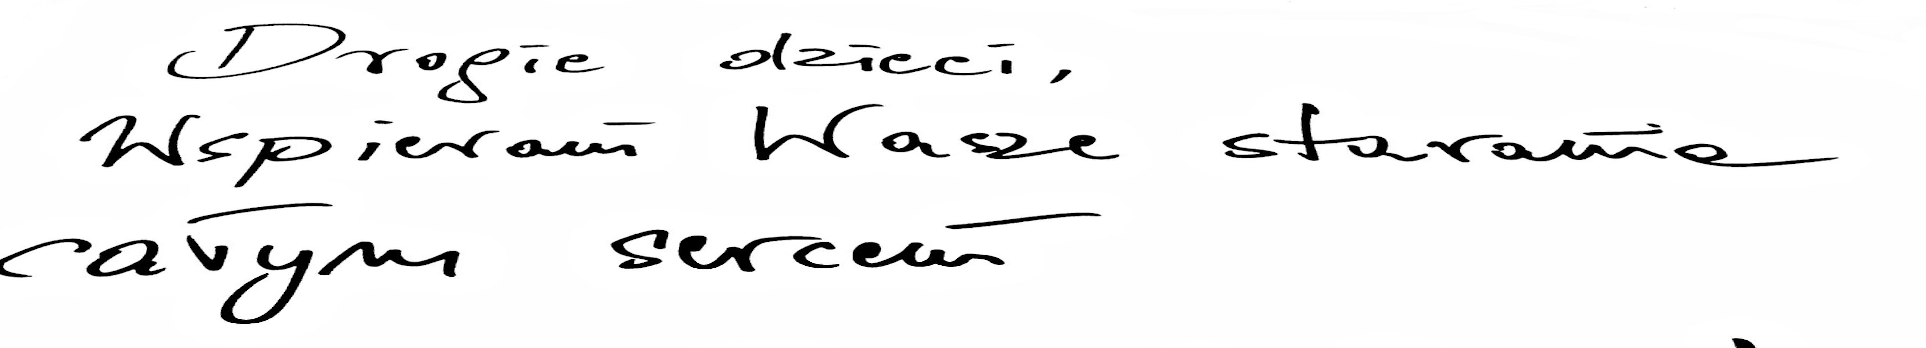 Drogie dzieci,
Wspieram Wasze starania
całym sercem